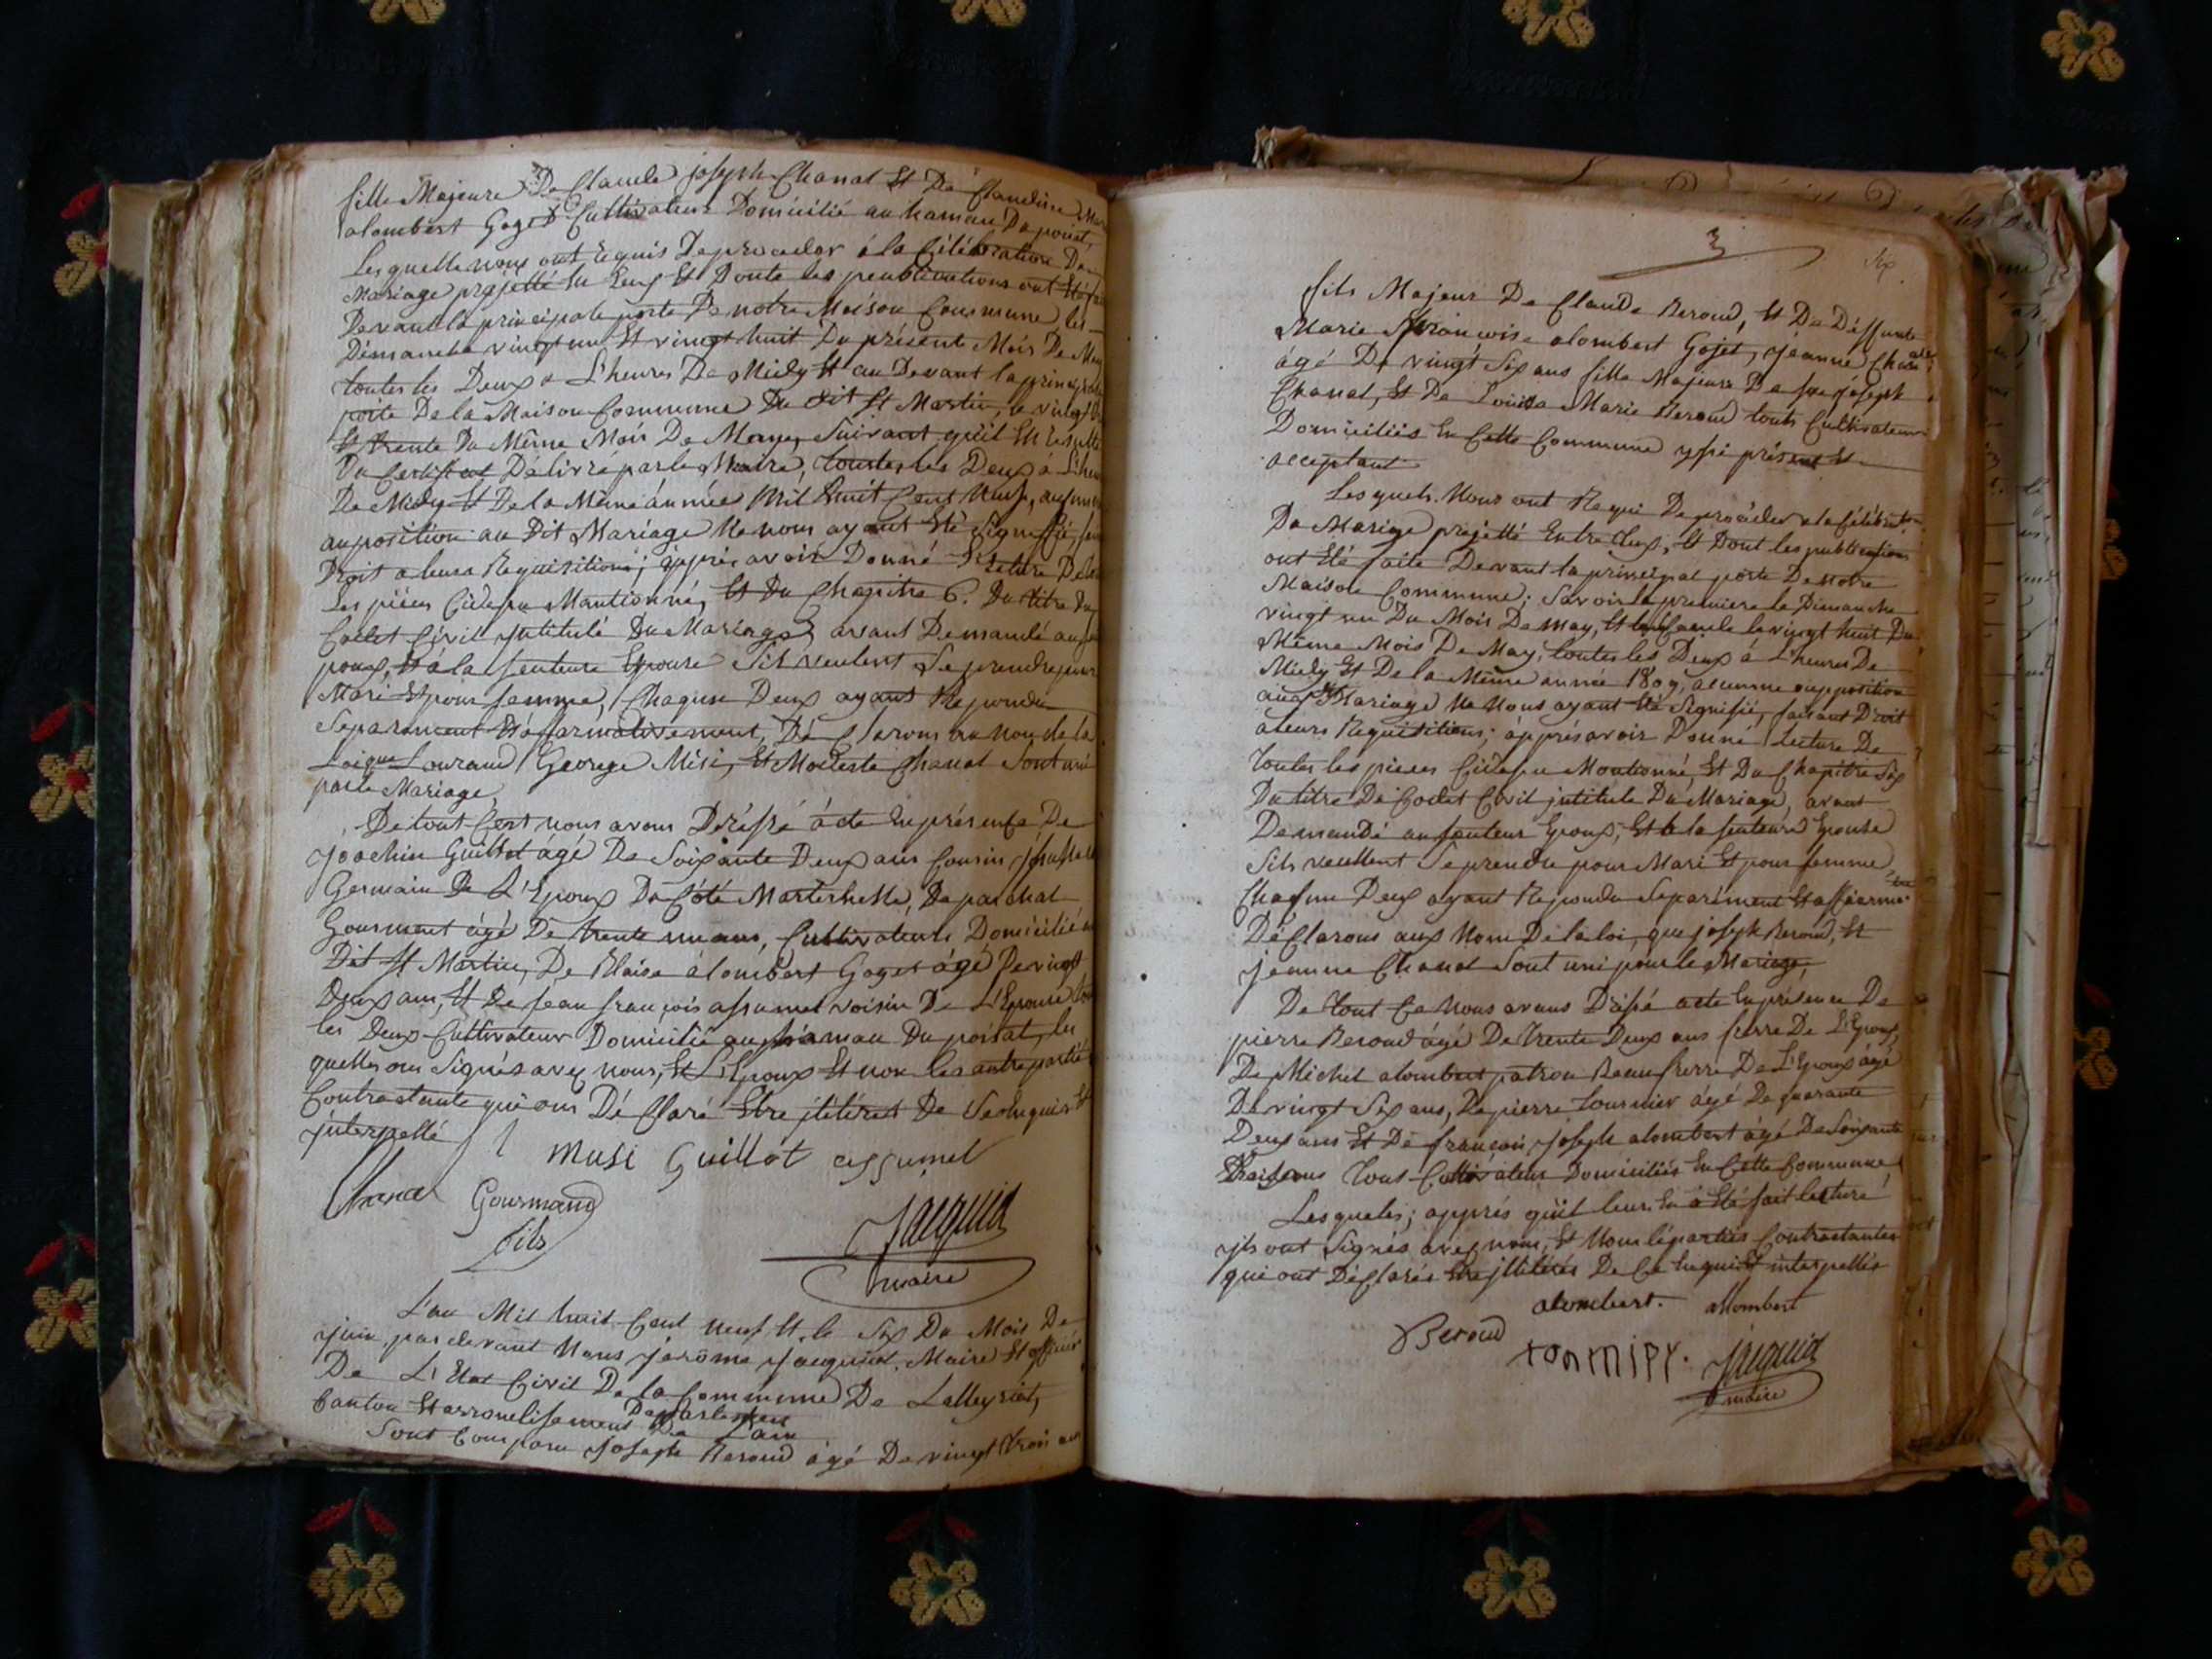 fille Majeure De Claude joseph Chanal Et De Claudine Mar
alombert Goget Cultivateur Domicilié au hameau De poisat,
Les quelle nous ont requis De proceder à la Célébration De
Mariage projetté En Eux Et Donte les peublications ont Eté
Devant la principale porte De notre Maison Commune les
Dimanche vingt un Et vingt huit Du présente Mois De May
toutes les Deux a L'heures De Midy Et au Devant la principale
porte De la Maison Commune Du dit St Martin, le vingt
Et trente Du Même Mois De Maye, Suivant qu'il En
Du Certificat Délivré par le Maire, toutes les Deux à L'heur
De Midy Et De la Même année Mil huit Cent Neuf, aucune
auposition au Dit Mariage Ne nous ayant Eté Signiffié,
Droit a leurs Requisitions, apprés avoir Donné Lecture De
Les piéces Cidesu Mantionné, Et Du Chapitre 6. Du titre Du
Codet Civil jntitulé Du Mariage, avant Demandé au
poux, Et à la feuteure Epouse S'ils veulent Se prendre pour
Mari Et pour femme, Chaqune Deux ayant Repondu
Separement Et afarmativement, Dé Clarons au Nom de la
Loi que George Musi, Et Modeste Chanal Sont uni
par le Mariage
De tout Cest nous avons Dréssé acte En présence De
joachin Guillot agé De Soixante Deux ans Cousin
Germain De L'Epoux Du Côté Marternelle, De paschal
Gourment agé De trente un ans, Cultivateurs Domicilié
Dit St Martin, De Blaise alombert Goget agé De vingt
Deux ans, Et De Jean françois assumel voisin De L'Epouse
les Deux Cultivateur Domicilié au hameau Du poisat, les
quelles ons Signés avec nous, Et L'Epoux Et non les autre partie
Contractante qui ons Dé Claré Etre jlitéres De Se Enquis Et
jnterpellé
Musi Guillot assumel
Chanal Gourmand
fils
Jacquiot
maire
L'an Mil huit Cent neuf Et le Six Du Mois De
juin, par devant Nous jerôme jacquiot Maire Et officier
De L'Etat Civil De la Commune De Lalleyriat,
Canton Et arrondissement
De L'ain
Sont Comparu joseph Beroud agé De vingt trois ans
3
Six
fils Majeur De Claude Beroud, Et De Déffunte
Marie françoise alombert Gojet, jeanne Chanal
agé De vingt Six ans fille Majeure De feu joseph
Chanal, Et De Louise Marie Beroud touts Cultivateur
Domiciliés En Cette Commune yssi présent Et
acceptant
Lesquels Nous ont Requi De procéder a la Célébration
De Mariage projetté Entre Eux, Et Dont les publications
ont Eté faite Devant la principal porte De notre
Maison Commune; Savoir la premiere le Dimanche
vingt un Du Mois De may, Et la le vingt huit Du
Même Mois De May, toutes les Deux à L'heures De
Midy Et De la Même année 1809, aucunne oupposition
aux Mariage Ne Nous ayant Eté Signifié, faisant Droit
aleurs Requisitions; apprés avoir Donné Lecture De
toutes les pieces Cidesu Montionné, Et Du Chapitre Six
Du titre De Codet Civil jntitule Du Mariage, avant
Demandé au feuteur Epoux, Et a la feuteure Epouse
Sils veullent Se prendre pour Mari Et pour femme,
Chacune Deux ayant Repondu Separément Et affearme
Déclarons aux Nom De la loi, que joseph Beroud, Et
jeanne Chanal Sont uni pour le Mariage,
De tout Ce Nous avons Dréssé acte En présence De
pierre Beroud agé De trente Deux ans frerre De L'Epoux
De Michel alombert patron Beau frerre De L'Epoux agé
De vingt Six ans, De pierre tournier agé De quarante
Deux ans Et De françois joseph alombert agé De Soixante
trois ans tous Cultivateur Domiciliés En Cette Commune
Lesqueles; apprés qu'il leur En à Eté fait lecture
jls ont Signés avec nous, Et Non les parties Contractantes
qui ont Déclarés Etre jllitéres De Ce Enquis Et interpellés
alombert. allombert
Beroud
tornipy. Jacquiot
maire